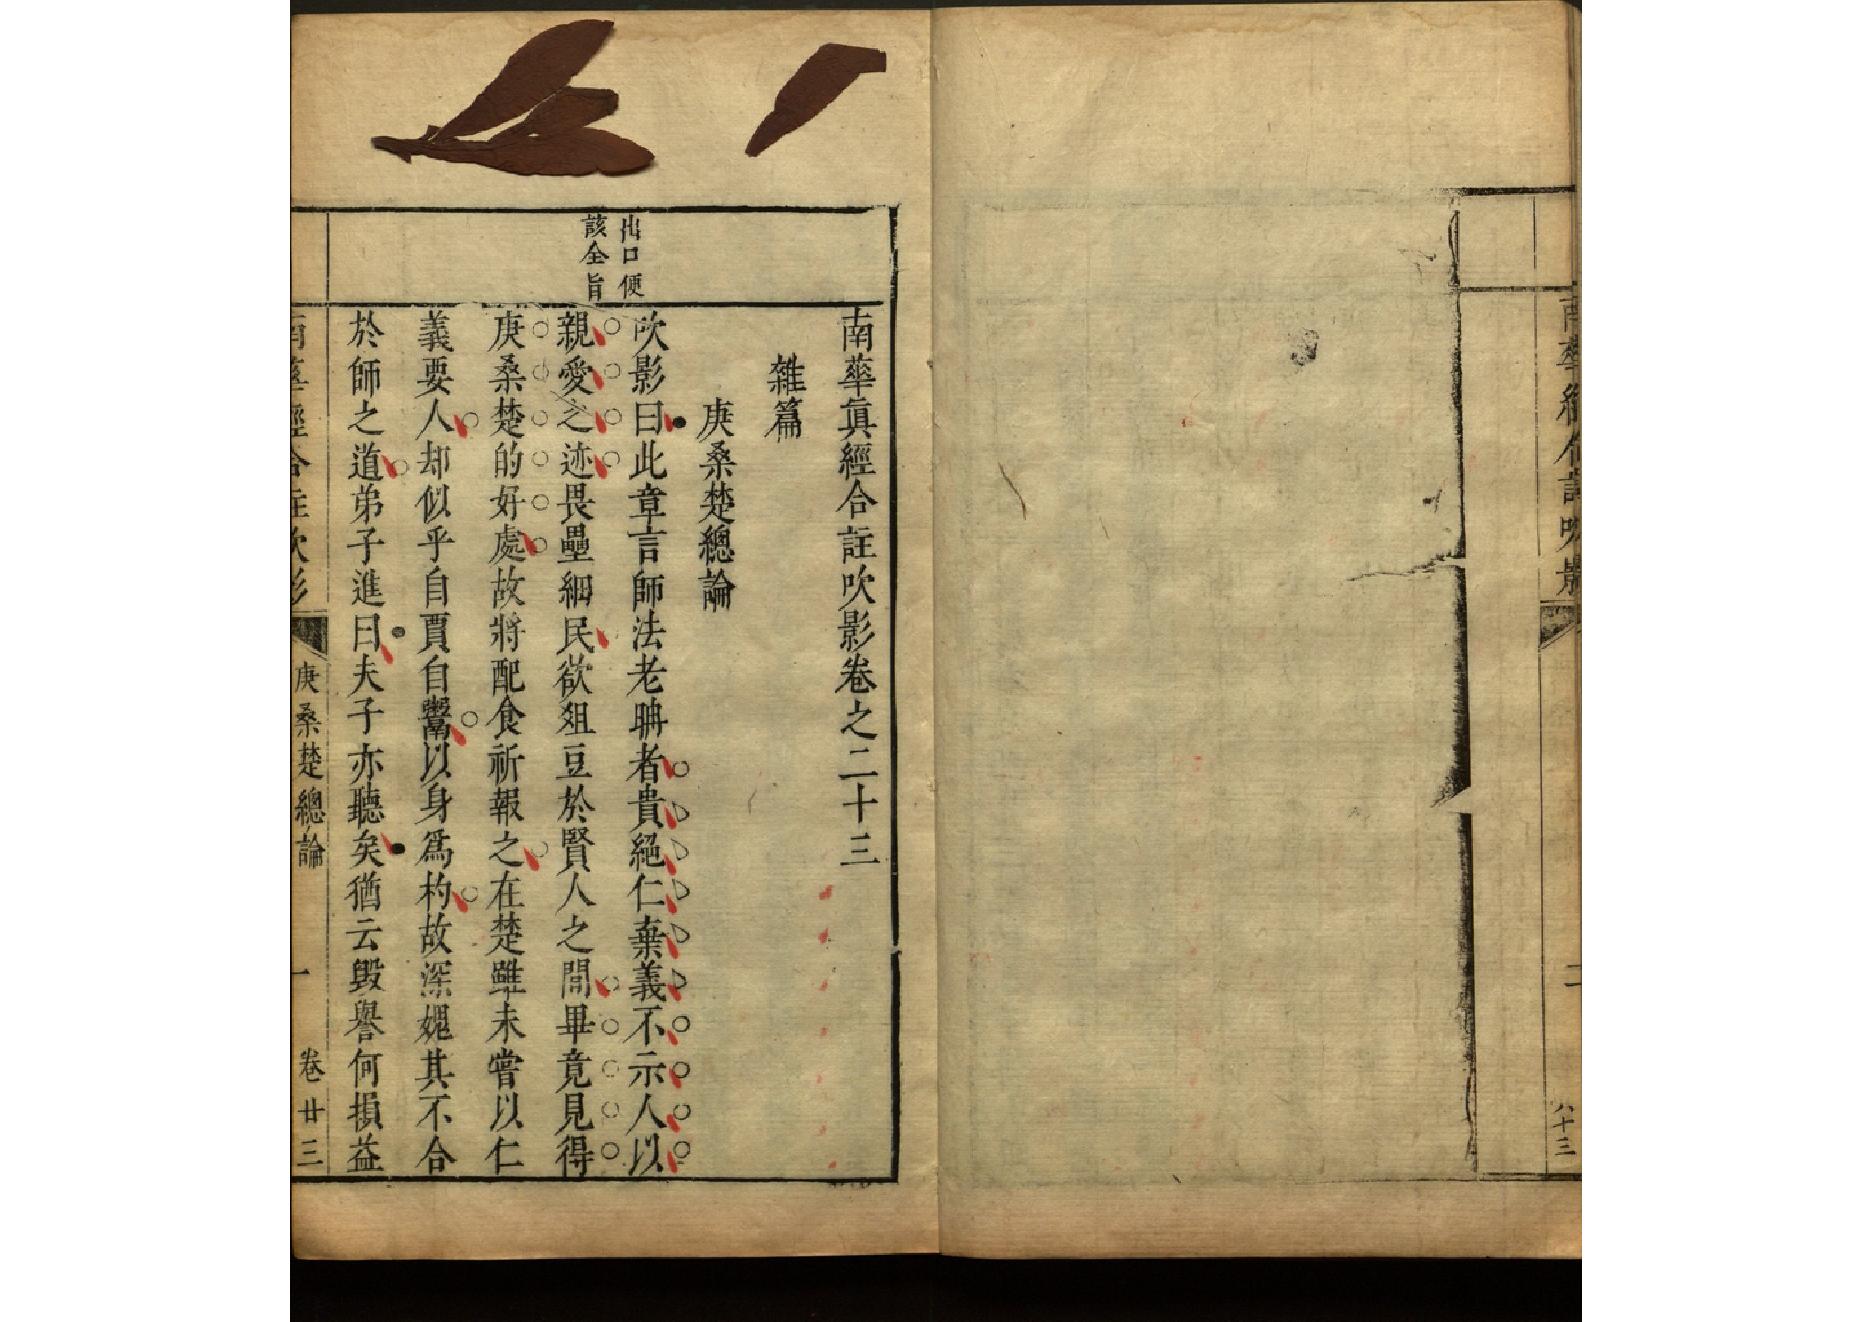 南華經合註吹影
二
八十三
出口便
該全旨
南華眞經合註吹影卷之二十三
雜篇
庚桑楚總論
吹影曰此章言師法老聃者貴絕仁棄義不示人以
親愛之迹畏壘細民欲俎豆於賢人之間畢竟見得
庚桑楚的好處故將配食祈報之在楚雖未嘗以仁
義要人却似乎自賈自鬻以身爲杓故深媿其不合
於師之道弟子進曰夫子亦聽矣猶云毀譽何損益
南華經合註吹影
庚桑楚總論
一
卷廿三